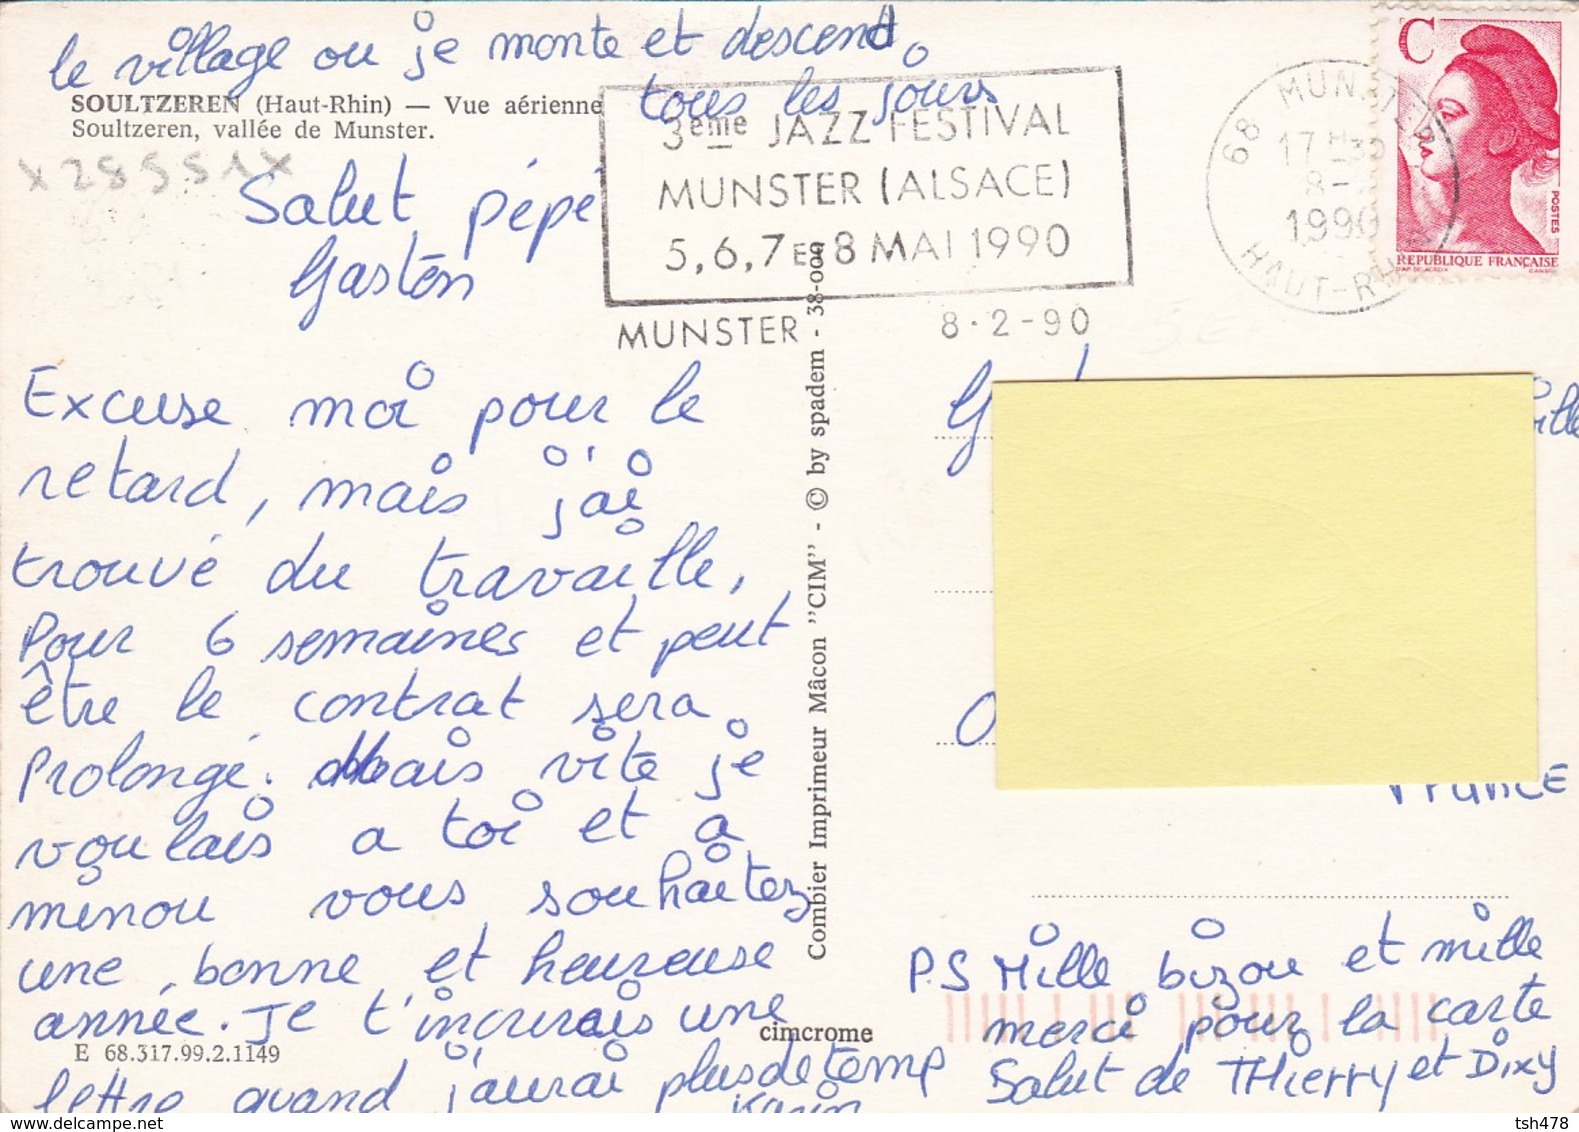 le village ou je monte et descend
tous les jours
SOULTZEREN (Haut-Rhin) — Vue aérienne
Soultzeren, vallée de Munster.
X 28551X
Salut pépé
Gaston
3eme JAZZ FESTIVAL
MUNSTER (ALSACE)
5, 6, 7 ET 8 MAI 1990
MUNSTER 8-2-90
68 MUNSTER
17 H
8-
1990
HAUT-RH
C
POSTES
REPUBLIQUE FRANÇAISE
Excuse moi pour le
retard, mais j'ai
trouvé du travaille,
Pour 6 semaines et peut
être le contrat sera
Prolongé. Mais vite je
voulais a toi et a
minou vous souhaitez
une bonne et heureuse
année. Je t'incrirais une
lettre quand j'aurai plus de temp
Karin
Combier Imprimeur Mâcon "CIM" - © by spadem - 38-000
cimcrome
E 68.317.99.2.1149
France
P.S Mille bizou et mille
merci pour la carte
Salut de THierry et Dixy
www.delcampe.net
tsh478